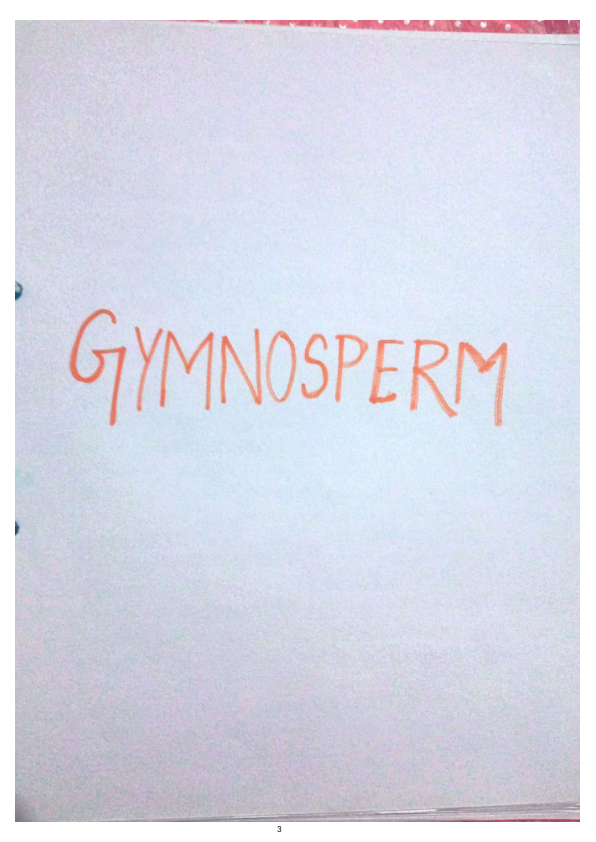 GYMNOSPERM
3